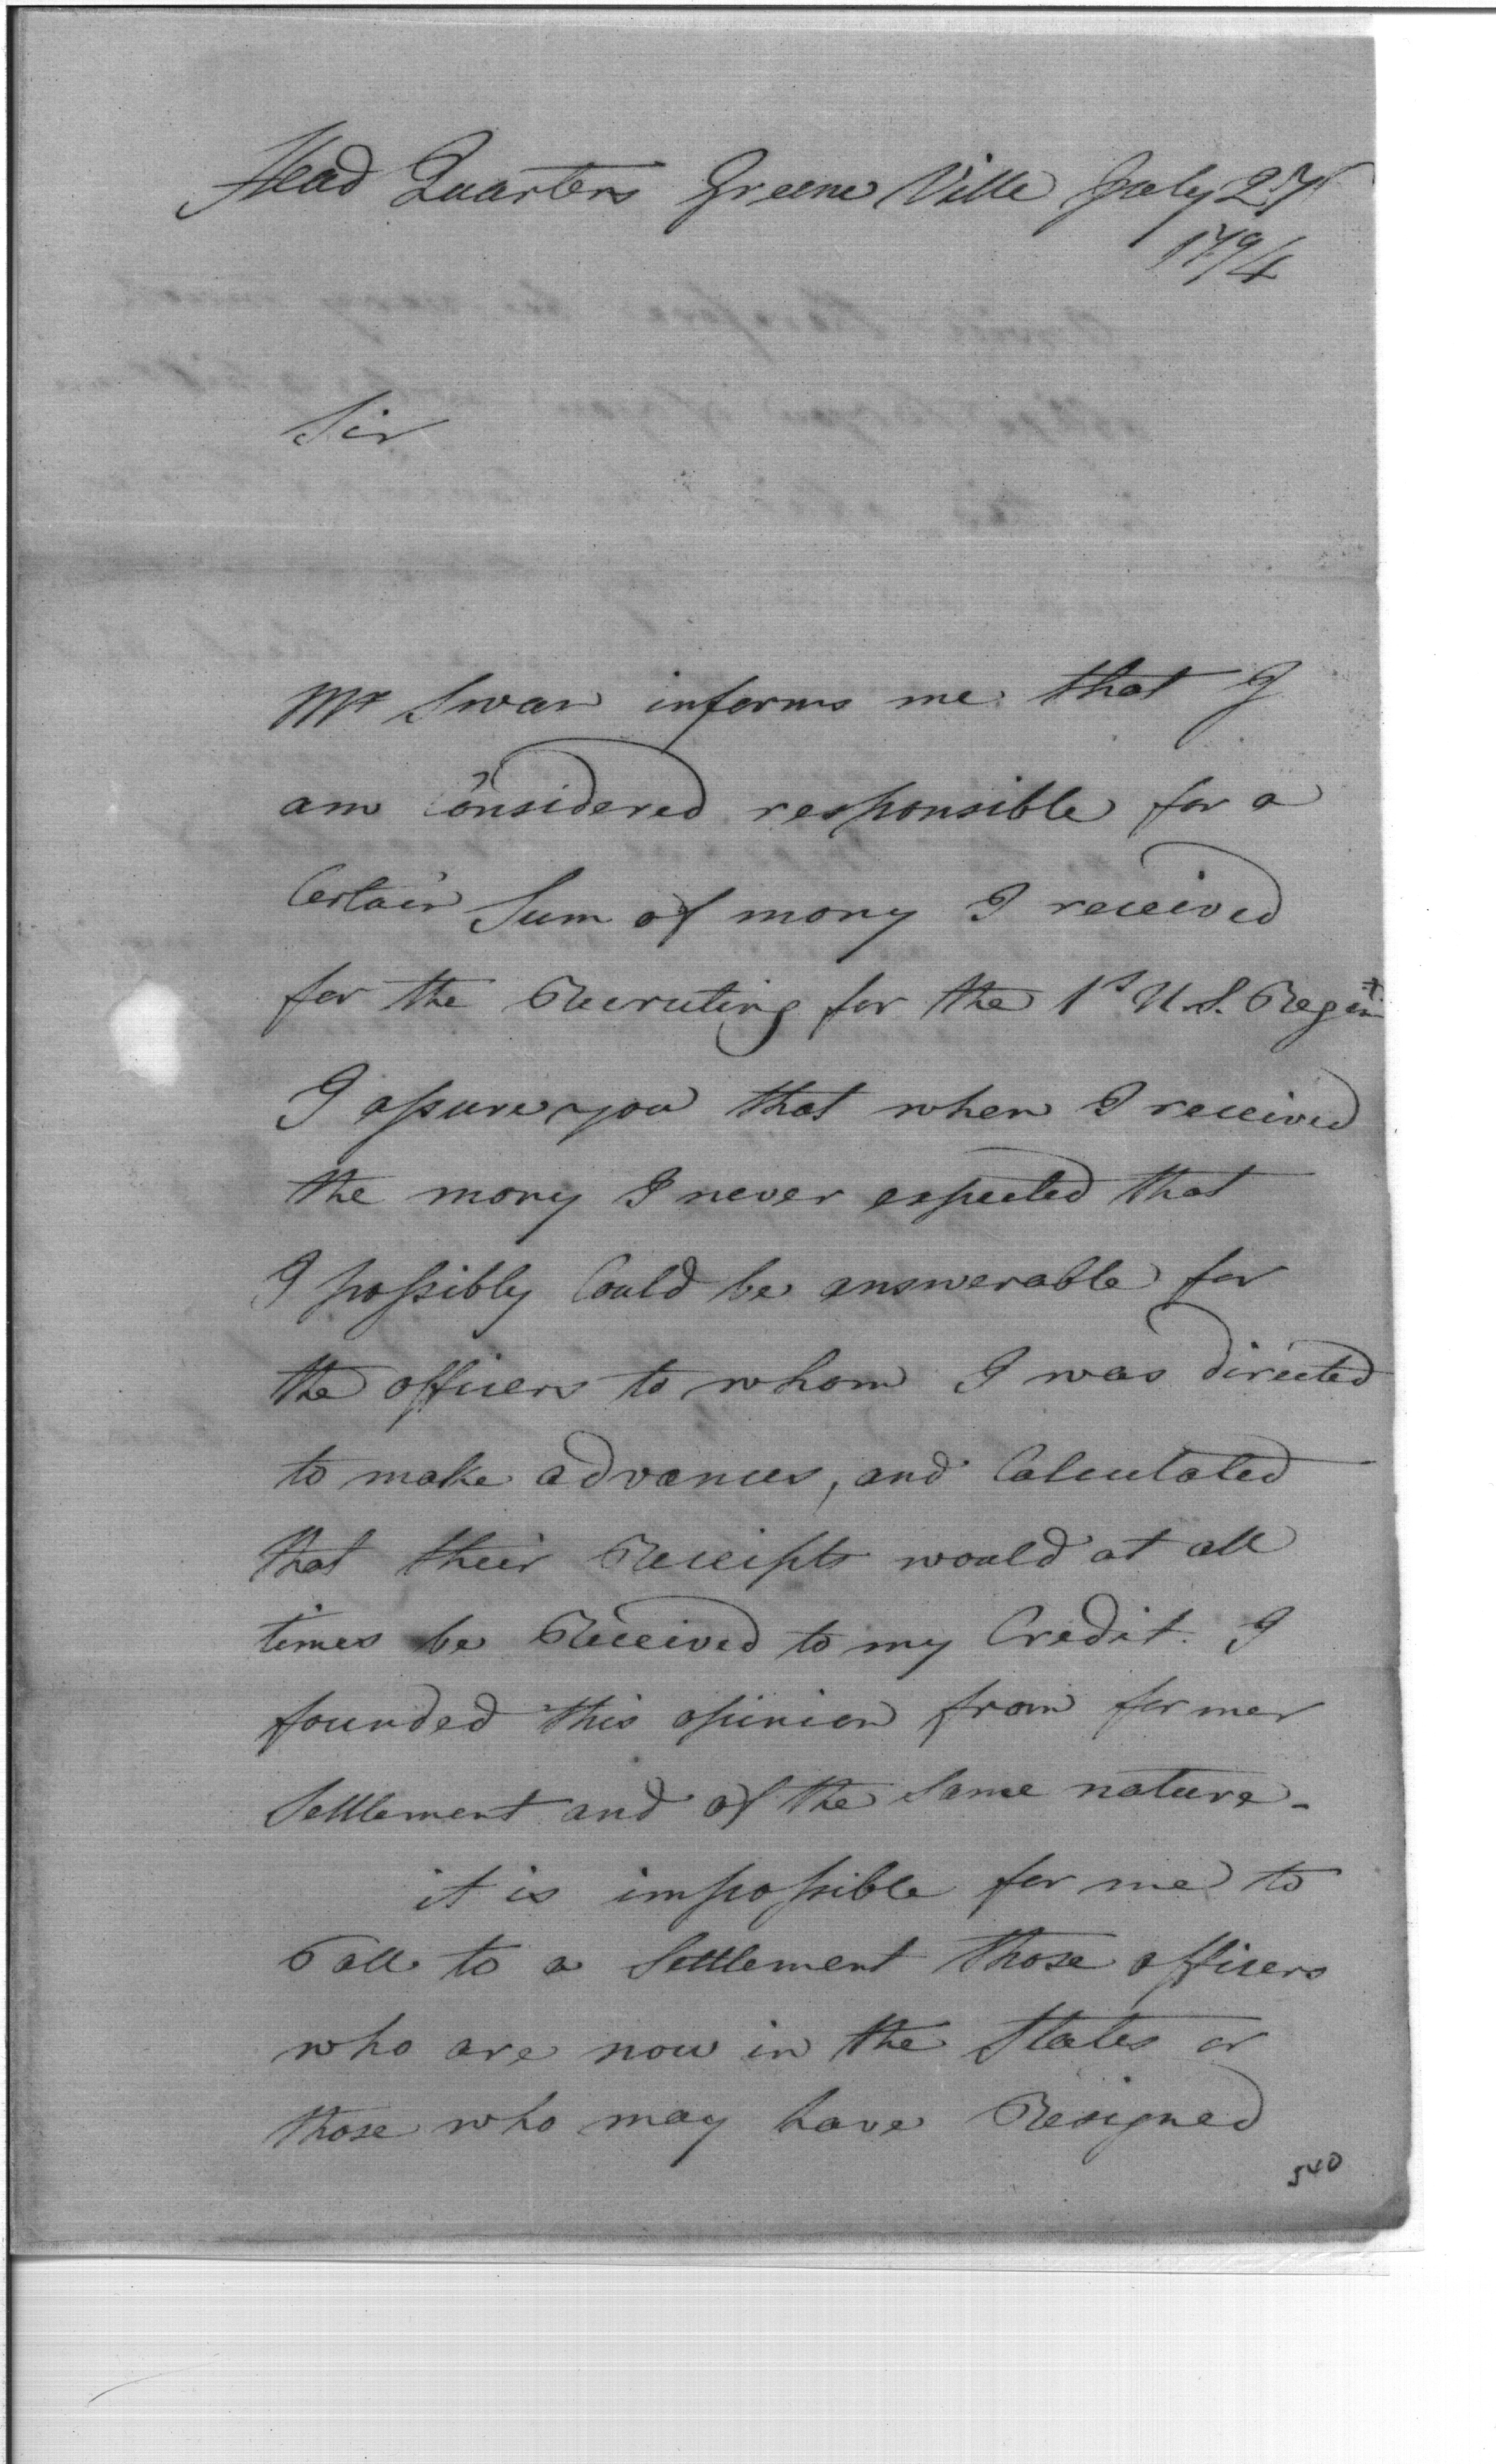 Head Quarters Greene Ville July 27
1794
Sir
Mr Swan informs me that I
am Considered responsible for a
Certain Sum of mony I received
for the Recruting for the 1st U.S. Regimt
I assure you that when I received
the mony I never expected that
I possibly Could be answerable for
the officers to whom I was directed
to make advances, and Calculated
that their Receipts would at all
times be Received to my Credit. I
founded this opinion from former
Settlement and of the same nature -
it is impossible for me to
Call to a Settlement those officers
who are now in the States or
those who may have Resigned
540